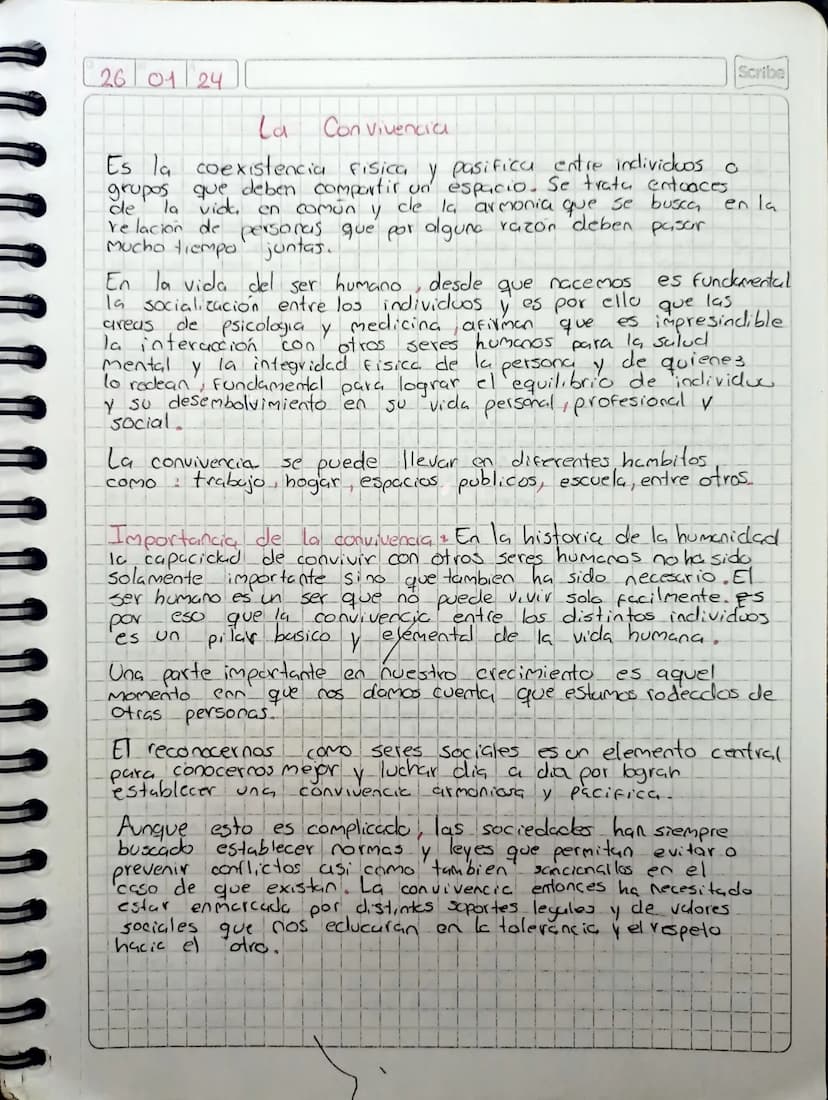 26 01 24
Scribe
La Convivencia
Es la coexistencia fisica y pasifica entre individuos o
grupos que deben compartir un espacio. Se trata entonces
de la vida en común y de la armonia que se busca en la
relacion de personas que por alguna razón deben pasar
mucho tiempo juntas.
En la vida del ser humano, desde que nacemos es fundamental
la socialización entre los individuos y es por ello que las
areas de psicologia y medicina, afirman que es impresindible
la interacción con otros seres humanos para la salud
mental y la integridad fisica de la persona y de quienes
lo rodean, fundamental para lograr el equilibrio de individuo
y su desembolvimiento en su vida personal, profesional y
social.
La convivencia se puede llevar en diferentes hambitos
como: trabajo, hogar, espacios publicos, escuela, entre otros.
Importancia de la convivencia: En la historia de la humanidad
la capacidad de convivir con otros seres humanos no ha sido
solamente importante sino que tambien ha sido necesario. El
ser humano es un ser que no puede vivir solo facilmente. Es
por eso que la convivencia entre los distintos individuos
es un pilar basico y elemental de la vida humana.
Una parte importante en nuestro crecimiento es aquel
momento enn que nos damos cuenta que estamos rodeados de
otras personas.
El reconocernos como seres sociales es un elemento central
para conocernos mejor y luchar dia a dia por lograh
establecer una convivencia armoniosa y pacifica.
Aunque esto es complicado, las sociedades han siempre
buscado establecer normas y leyes que permitan evitar o
prevenir conflictos asi como tambien sancionallos en el
caso de que existan. La convivencia entonces ha necesitado
estar enmarcada por distintos soportes legales y de valores
sociales que nos educaran en la tolerancia y el respeto
hacia el otro.